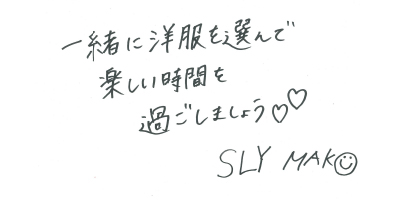 一緒に洋服を選んで
楽しい時間を
過ごしましょう♡♡
SLY MAK☺